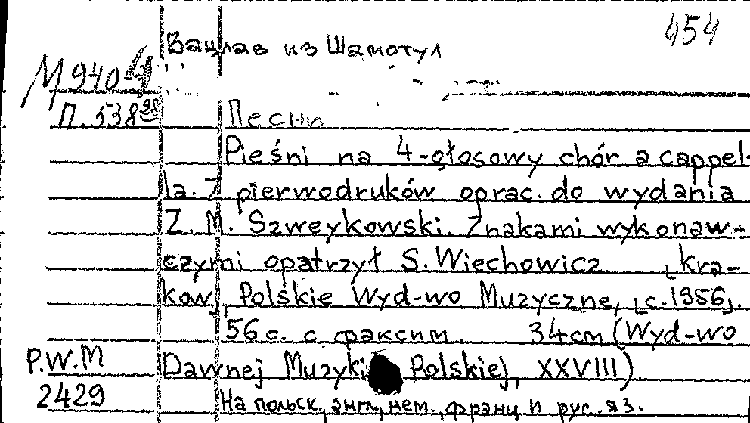 454
Вацлав из Шамотул
М 940-4
П. 538
Песни
Pieśni na 4-głosowy chór a cappel-
la. 7 pierwodruków oprac. do wydania
Z. M. Szweykowski. Znakami wykonaw-
czymi opatrzył S. Wiechowicz [Kra-
ków], Polskie Wyd-wo Muzyczne, [c. 1956].
56 с. с факсим. 34 cm (Wyd-wo
P.W.M Dawnej Muzyki Polskiej, XXVIII)
2429 На польск, англ, нем., франц и рус. яз.